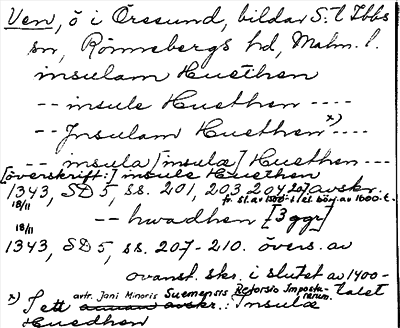 Ven, ö i Öresund, bildar S:t Ibbs
sn, Rönnebergs hd, Malm. l.
insulam Huethen
-- insule Huethen ----
-- Jnsulam Huethen x) ----
-- insula [insulæ] Huethen ---
[överskrift:] insule Huethen
1343, SD 5, ss. 201, 203 204 207 avskr.
18/11 fr. sl. av 1500- l. el. börj. av 1600-t.
-- hwadhen [3 ggr]
18/11
1343, SD 5, ss. 207-210. övers. av
ovanst. skr. i slutet av 1400-
talet
x) I ett avtr. Jani Minoris Suemensis Reforsio Imposta-
rerum.: Insula
Huedhen